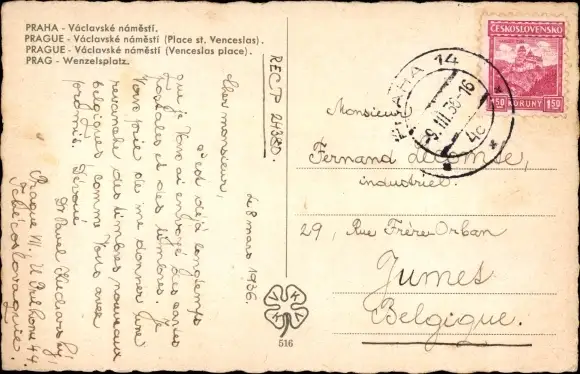 PRAHA - Václavské náměstí.
PRAGUE - Václavské náměstí (Place st. Venceslas).
PRAGUE - Václavské náměstí (Venceslas place).
PRAG - Wenzelsplatz.
RECP 24380.
le 8 mars 1936.
Cher monsieur,
c'est déjà longtemps
que je Vous ai envoyé des cartes
postales et des timbres. Je
Vous prie de me donner une
revanche des timbres nouveaux
belgiques comme Vous avez
promis. Dévoué
Dr Pavel
Prague VI, U 44.
Tchécoslovaquie.
516
PRAHA 14
9.III.36-16
4c
ČESKOSLOVENSKO
1·50 KORUNY 1·50
Monsieur
Fernand decomse,
industriel.
29, Rue Frère-Orban
Jumet
Belgique.